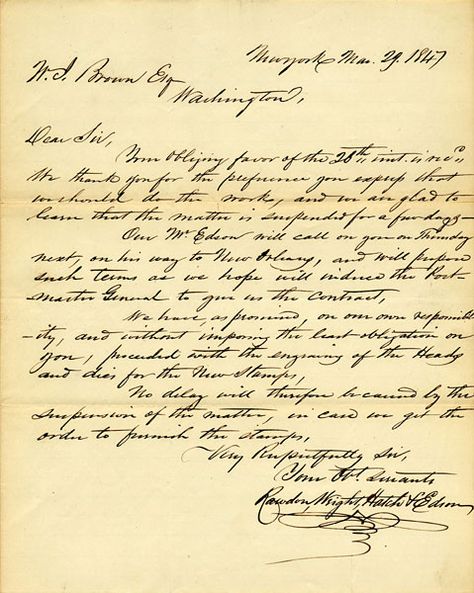 New york Mar. 29. 1847
W. J. Brown Esq
Washington,
Dear Sir,
Your Obliging favor of the 28th, inst. is rec'd,
We thank you for the preference you express that
we should do the work, and we are glad to
learn that the matter is suspended for a few days—
Our Mr Edson will call on you on Thursday
next, on his way to New Orleans, and will propose
such terms as we hope will induce the Post-
Master General to give us the Contract,
We have, as promised, on our own responsibil
-ity, and without imposing the least obligation on
you, proceeded with the engraving of the Heads
and dies for the New Stamps,
No delay will therefore be caused by the
suspension of the matter, in case we get the
order to furnish the stamps,
Very Respectfully Sir,
Your Obt. Servants
Rawdon, Wright, Hatch & Edson